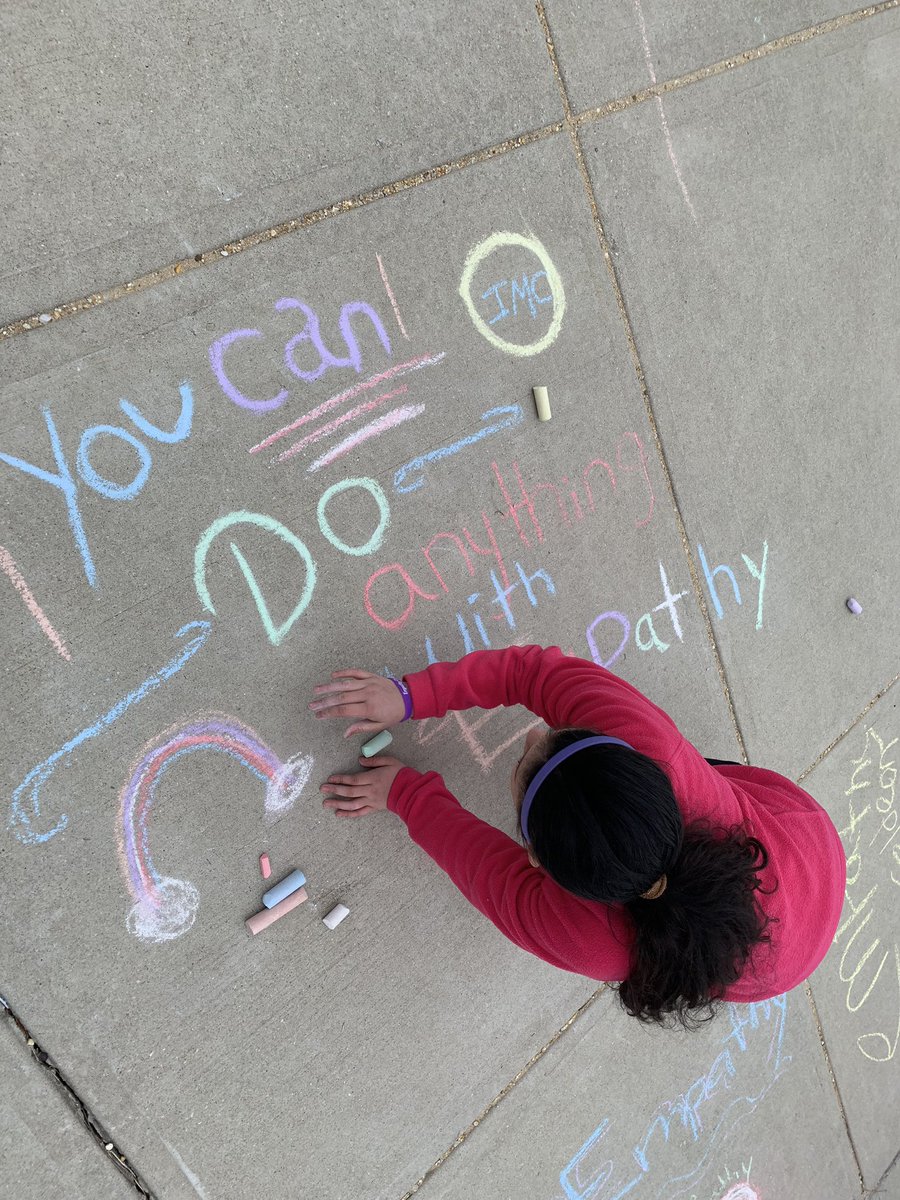 You can!
IMO
Do
anything
With
pathy
Empathy